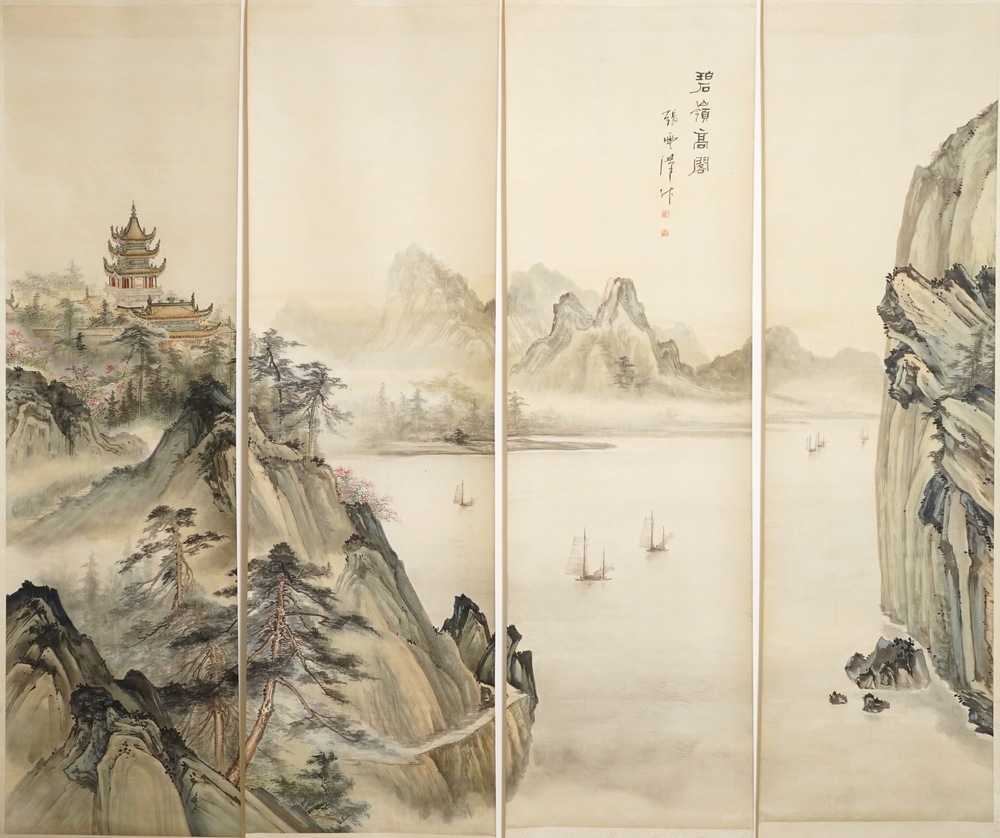 碧嶺高閣
張雲澤作